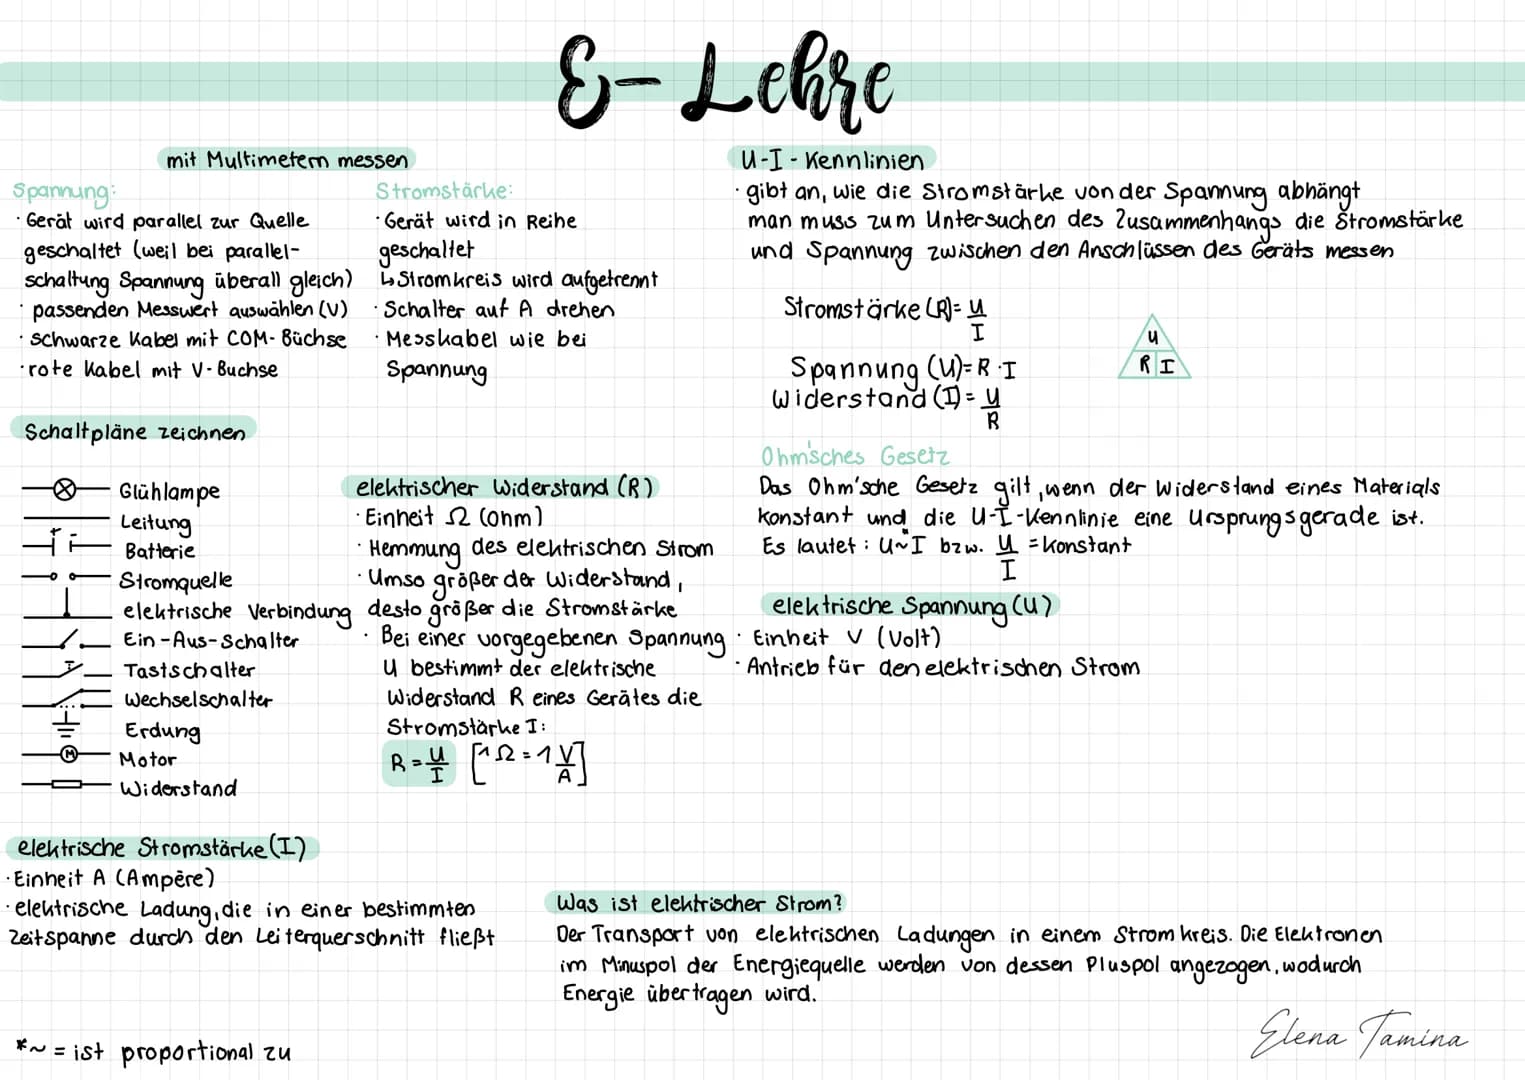 E-Lehre
mit Multimetern messen
Spannung:
· Gerät wird parallel zur Quelle
geschaltet (weil bei parallel-
schaltung Spannung überall gleich)
· passenden Messwert auswählen (V)
· schwarze Kabel mit COM-Büchse
· rote Kabel mit V-Buchse
Stromstärke:
· Gerät wird in Reihe
geschaltet
↳ Stromkreis wird aufgetrennt
· Schalter auf A drehen
· Messkabel wie bei
Spannung
U-I-Kennlinien
· gibt an, wie die Stromstärke von der Spannung abhängt
man muss zum Untersuchen des Zusammenhangs die Stromstärke
und Spannung zwischen den Anschlüssen des Geräts messen
Stromstärke (R) = U
I
Spannung (U) = R · I
Widerstand (I) = U
R
U
R I
Ohm'sches Gesetz
Das Ohm'sche Gesetz gilt, wenn der Widerstand eines Materials
konstant und die U-I-Kennlinie eine Ursprungsgerade ist.
Es lautet: U~*I bzw. U = konstant
I
Schaltpläne zeichnen
Glühlampe
Leitung
Batterie
Stromquelle
elektrische Verbindung
Ein-Aus-Schalter
Tastschalter
Wechselschalter
Erdung
M Motor
Widerstand
elektrischer Widerstand (R)
· Einheit Ω (Ohm)
· Hemmung des elektrischen Strom
· Umso größer der Widerstand,
desto größer die Stromstärke
· Bei einer vorgegebenen Spannung
U bestimmt der elektrische
Widerstand R eines Gerätes die
Stromstärke I:
R = U [1 Ω = 1 V]
I A
elektrische Spannung (U)
· Einheit V (Volt)
· Antrieb für den elektrischen Strom
elektrische Stromstärke (I)
· Einheit A (Ampère)
· elektrische Ladung, die in einer bestimmten
Zeitspanne durch den Leiterquerschnitt fließt
Was ist elektrischer Strom?
Der Transport von elektrischen Ladungen in einem Stromkreis. Die Elektronen
im Minuspol der Energiequelle werden von dessen Pluspol angezogen, wodurch
Energie übertragen wird.
*~ = ist proportional zu
Elena Tamina